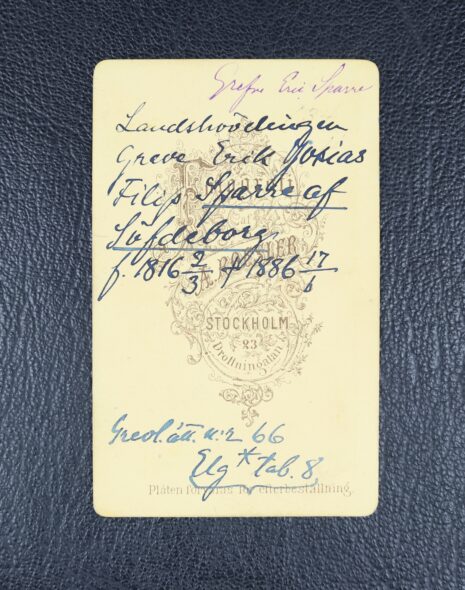 Grefve Eric Sparre
Landshövdingen
Greve Erik Josias
Filip Sparre af
Söfdeborg
f. 1816 2/3 † 1886 17/6
STOCKHOLM
23
Drottninggatan
Grevl. ätt. n:r 66
Elg* tab. 8
Plåten förvaras för efterbeställning.